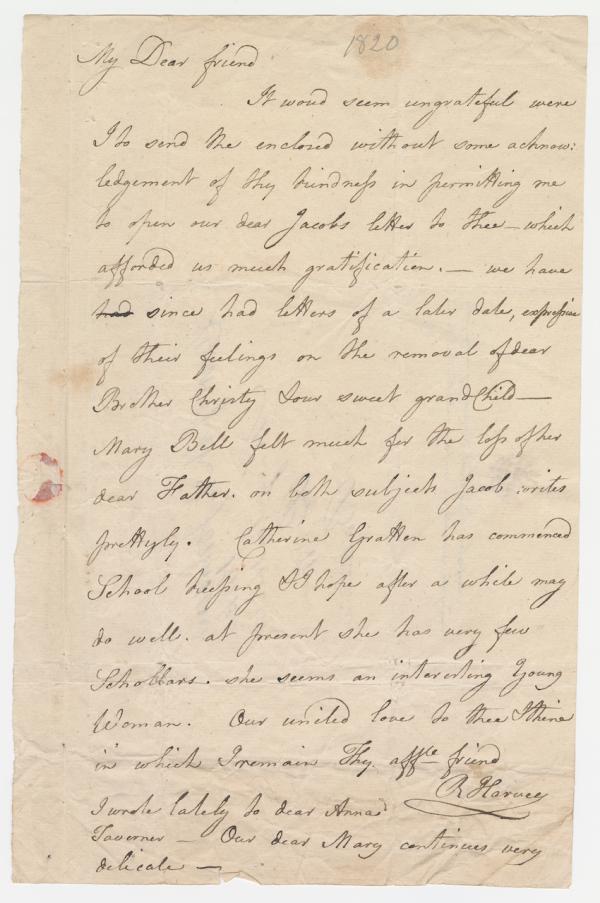 1820
My Dear friend
It woud seem ungrateful were
I to send the enclosed without some acknow:
ledgement of thy kindness in permitting me
to open our dear Jacobs letter to thee – which
afforded us much gratification. – we have
had since had letters of a later date, expressive
of their feelings on the removal of dear
Brother Christy & our sweet grandChild –
Mary Bell felt much for the loss of her
dear Father. on both subjects Jacob writes
prettyly. Catherine Gratten has commenced
School keeping & I hope after a while may
do well. at present she has very few
Schollars. she seems an interesting Young
Woman. Our united love to thee & thine
in which I remain Thy affte friend
R Harvey
I wrote lately to dear Anna
Taverner – Our dear Mary continues very
delicate –